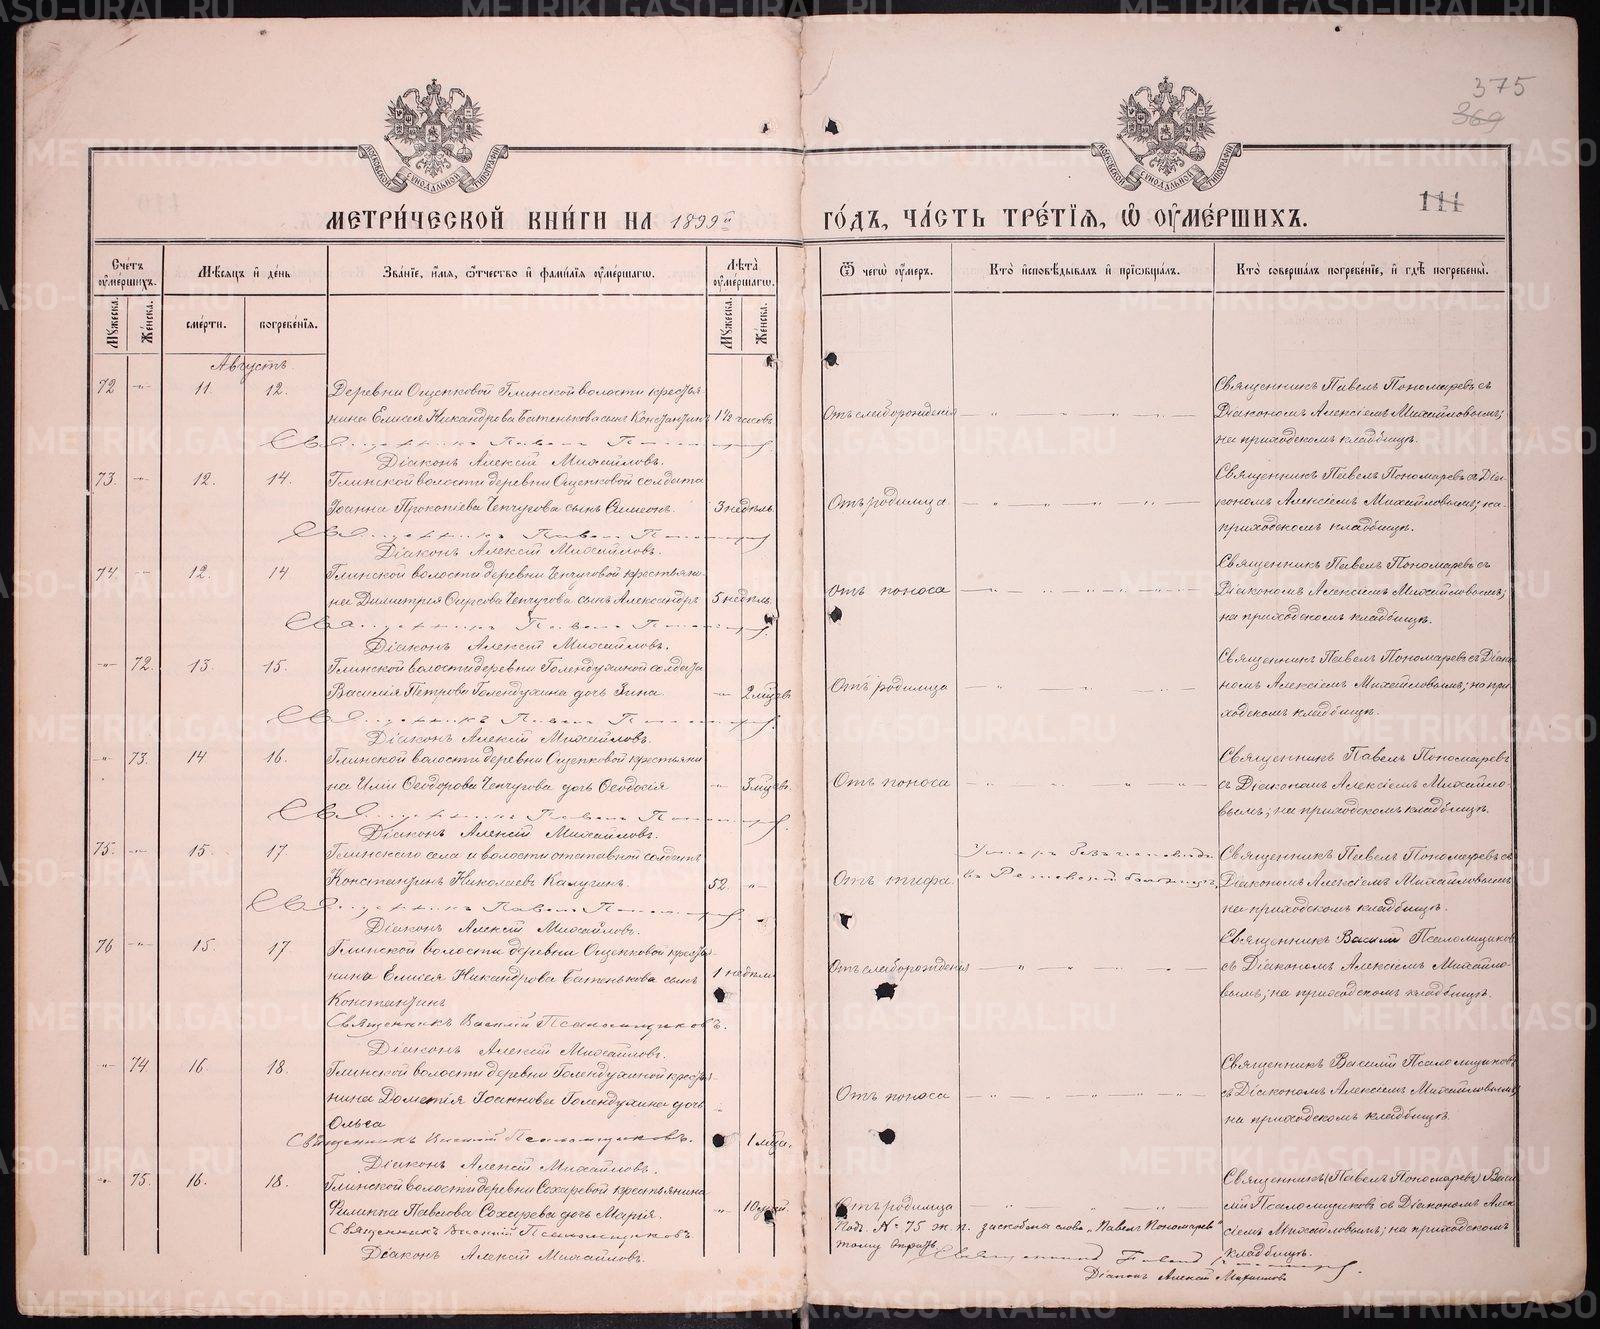 375
369
111
МОСКОВСКОЙ СѴНОДАЛЬНОЙ ТИПОГРАФІИ
МОСКОВСКОЙ СѴНОДАЛЬНОЙ ТИПОГРАФІИ
МЕТРИ́ЧЕСКОЙ КНИ́ГИ НА 1899й ГО́ДЪ, ЧА́СТЬ ТРЕ́ТІЯ, Ѡ ОУМЕ́РШИХЪ.
Счетъ оумершихъ.
Мужеска.
Женска.
Мѣсяцъ и день
смерти.
погребенія.
Званіе, имя, отчество и фамилія оумершагѡ.
Лѣта оумершагѡ.
Мужеска.
Женска.
Ѿ чегѡ оумеръ.
Кто исповѣдывалъ и пріобщалъ.
Кто совершалъ погребеніе, и гдѣ погребены.
Августъ
72 -"- 11. 12. Деревни Ощепковой Глинской волости крестья-
нина Елисея Никандрова Батенькова сынъ Константинъ 1½ часовъ Отъ слаборожденія
Священникъ Павелъ Пономаревъ съ
Діакономъ Алексіемъ Михайловымъ;
на приходскомъ кладбищѣ.
Священникъ Павелъ Пономаревъ
Діаконъ Алексій Михайловъ.
73. -"- 12. 14. Глинской волости деревни Ощепковой солдата
Іоанна Прокопіева Чепчугова сынъ Симеонъ. 3 недѣль. Отъ родимца
Священникъ Павелъ Пономаревъ съ Діа-
кономъ Алексіемъ Михайловымъ; на
приходскомъ кладбищѣ.
Священникъ Павелъ Пономаревъ
Діаконъ Алексій Михайловъ.
74. -"- 12. 14 Глинской волости деревни Чепчуговой крестьяни-
на Димитрія Сиррова Чепчугова сынъ Александръ 5 недѣль. отъ поноса
Священникъ Павелъ Пономаревъ съ
Діакономъ Алексіемъ Михайловымъ;
на приходскомъ кладбищѣ.
Священникъ Павелъ Пономаревъ
Діаконъ Алексій Михайловъ.
-"- 72. 13. 15. Глинской волости деревни Голендухиной солдата
Василія Петрова Голендухина дочь Зина. -"- 2 мѣсяцевъ Отъ родимца
Священникъ Павелъ Пономаревъ съ Діако-
номъ Алексіемъ Михайловымъ; на при-
ходскомъ кладбищѣ.
Священникъ Павелъ Пономаревъ
Діаконъ Алексій Михайловъ.
-"- 73. 14 16. Глинской волости деревни Ощепковой крестьяни-
на Иліи Ѳеодорова Чепчугова дочь Ѳеодосія -"- 3 мѣсяцевъ. Отъ поноса
Священникъ Павелъ Пономаревъ
съ Діакономъ Алексіемъ Михайло-
вымъ; на приходскомъ кладбищѣ.
Священникъ Павелъ Пономаревъ
Діаконъ Алексій Михайловъ.
75. -"- 15. 17. Глинскаго села и волости отставной солдатъ
Константинъ Николаевъ Калугинъ. 52. -"- Отъ тифа.
Умеръ безъ исповѣди
въ Режевской больницѣ
Священникъ Павелъ Пономаревъ съ
Діакономъ Алексіемъ Михайловымъ
на приходскомъ кладбищѣ.
Священникъ Павелъ Пономаревъ
Діаконъ Алексій Михайловъ.
76 -"- 15. 17 Глинской волости деревни Ощепковой крестья-
нина Елисея Никандрова Батенькова сынъ
Константинъ 1 недѣли Отъ слаборожденія
Священникъ Василій Псаломщиковъ
съ Діакономъ Алексіемъ Михайло-
вымъ; на приходскомъ кладбищѣ.
Священникъ Василій Псаломщиковъ.
Діаконъ Алексій Михайловъ.
-"- 74 16. 18. Глинской волости деревни Голендухиной крестья-
нина Дометія Іоаннова Голендухина дочь
Ольга 1 мѣсяц. Отъ поноса
Священникъ Василій Псаломщиковъ
съ Діакономъ Алексіемъ Михайловымъ;
на приходскомъ кладбищѣ.
Священникъ Василій Псаломщиковъ.
Діаконъ Алексій Михайловъ.
-"- 75. 16. 18. Глинской волости деревни Сохаревой крестьянина
Филиппа Павлова Сохарева дочь Марія. -"- 10 дней. Отъ родимца
Священникъ (Павелъ Пономаревъ) Васи-
лій Псаломщиковъ съ Діакономъ Алек-
сіемъ Михайловымъ; на приходскомъ
кладбищѣ.
Священникъ Василій Псаломщиковъ.
Діаконъ Алексій Михайловъ.
Подъ № 75 ж. п. заскоблена слова „Павелъ Пономаревъ“
Священникъ Павелъ Пономаревъ.
Діаконъ Алексій Михайловъ
METRIKI.GASO-URAL.RU